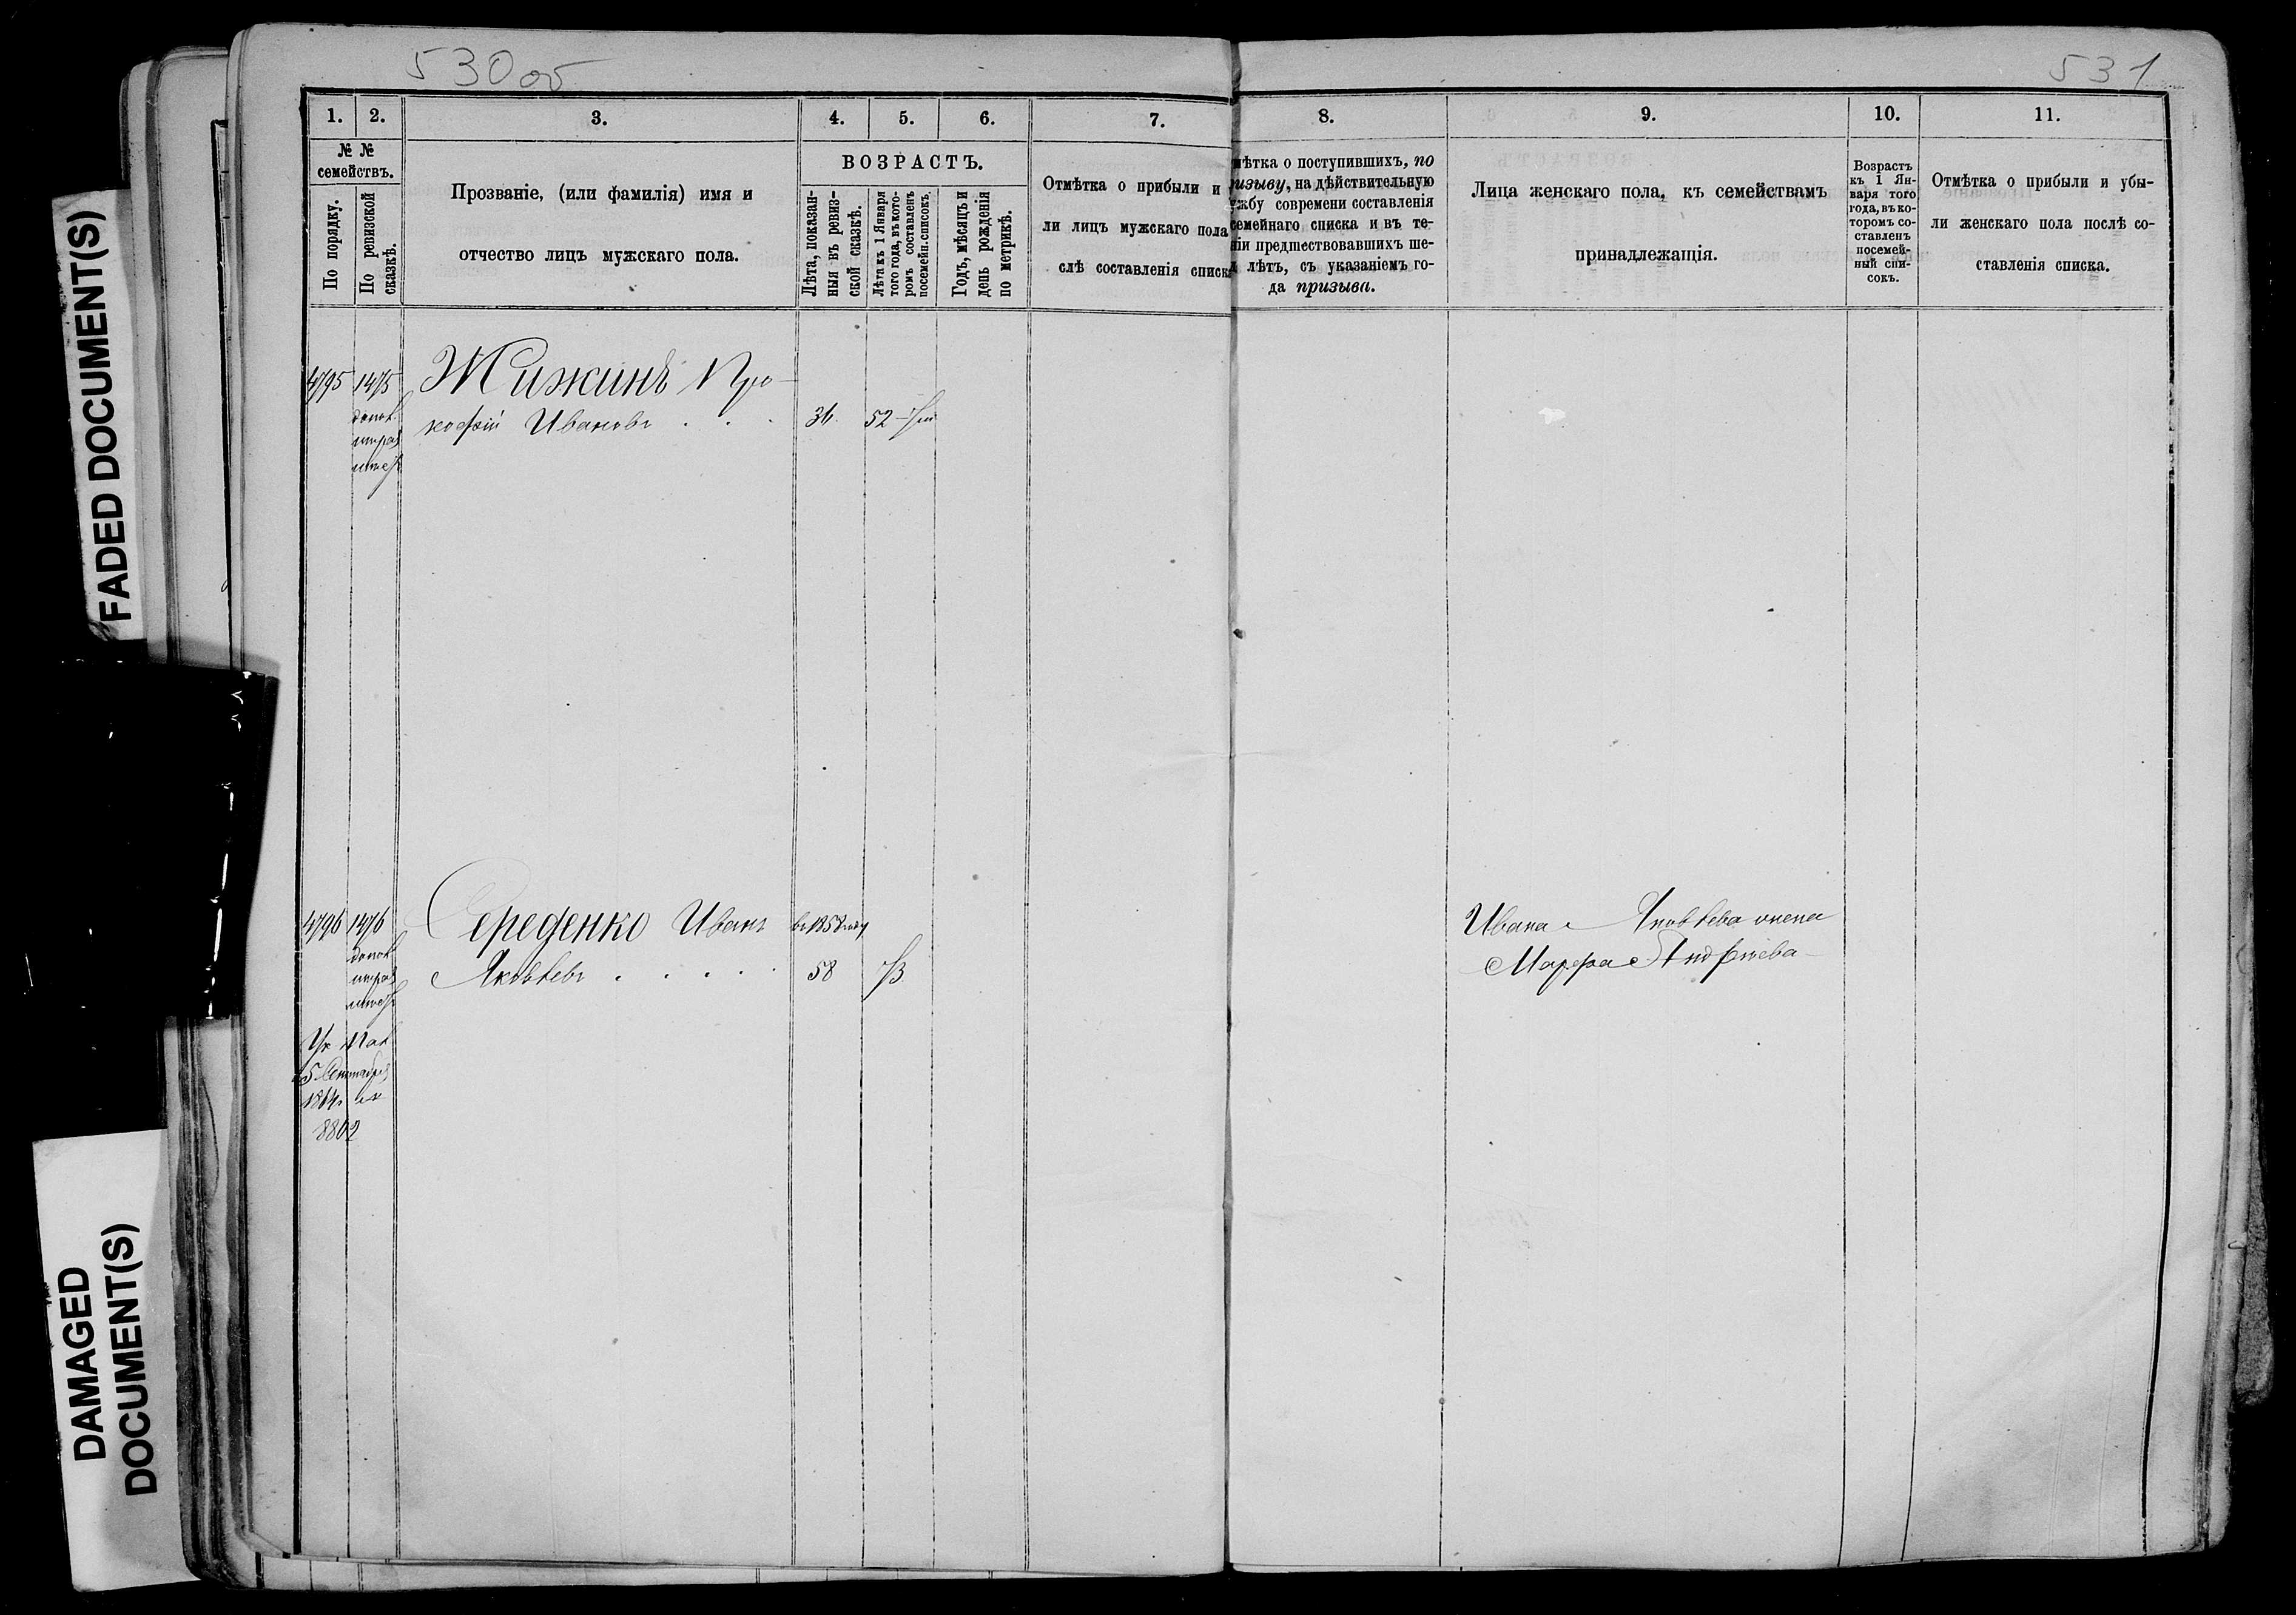 FADED DOCUMENT(S)
DAMAGED
DOCUMENT(S)
530 об
531
1. 2. 3. 4. 5. 6. 7. 8. 9. 10. 11.
№ №
семействъ.
По порядку.
По ревизской
сказкѣ.
Прозваніе, (или фамилія) имя и
отчество лицъ мужскаго пола.
ВОЗРАСТЪ.
Лѣта, показан-
ныя въ ревиз-
ской сказкѣ.
Лѣта къ 1 Января
того года, въ кото-
ромъ составленъ
посемейн. списокъ.
Годъ, мѣсяцъ и
день рожденія
по метрикѣ.
Отмѣтка о прибыли и
ли лицъ мужскаго пола
слѣ составленія списка
мѣтка о поступившихъ, по
ризыву, на дѣйствительную
ужбу современи составленія
семейнаго списка и въ те-
ніи предшествовавшихъ ше-
и лѣтъ, съ указаніемъ го-
да призыва.
Лица женскаго пола, къ семействамъ
принадлежащія.
Возрастъ
къ 1 Ян-
варя того
года, въ ко-
торомъ со-
ставленъ
посемей-
ный спи-
сокъ.
Отмѣтка о прибыли и убы-
ли женскаго пола послѣ со-
ставленія списка.
4795 1475 Жижинъ Про-
кофій Ивановъ . . . 36 52
4796 1476 Середенко Иванъ въ 1858 году
Яковлевъ . . . . . 58 73
5 Сентября
1864г за
8862
Ивана Яковлева жена
Марфа Андреева